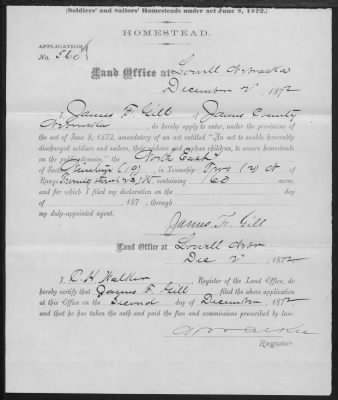 (Soldiers' and Sailors' Homesteads under act June 8, 1872.)
HOMESTEAD.
APPLICATION
No. 560
Land Office at Lowell Nebraska
December 2d, 1872
I, James F. Gill of James County
Nebraska, do hereby apply to enter, under the provisions of
the act of June 8, 1872, amendatory of an act entitled "An act to enable honorably
discharged soldiers and sailors, their widows and orphan children, to secure homesteads
on the public domain," the North East
of Section (19), in Township Two (2) N. of
Range containing 160 acres,
and for which I filed my declaration on the day
of , 187 , through
my duly-appointed agent.
James F. Gill
Land Office at Lowell
Dec 2d, 1872
I, C. H. Walker, Register of the Land Office, do
hereby certify that James F. Gill filed the above application
at this Office on the Second day of December, 1872
and that he has taken the oath and paid the fees and commissions prescribed by law.
Register.